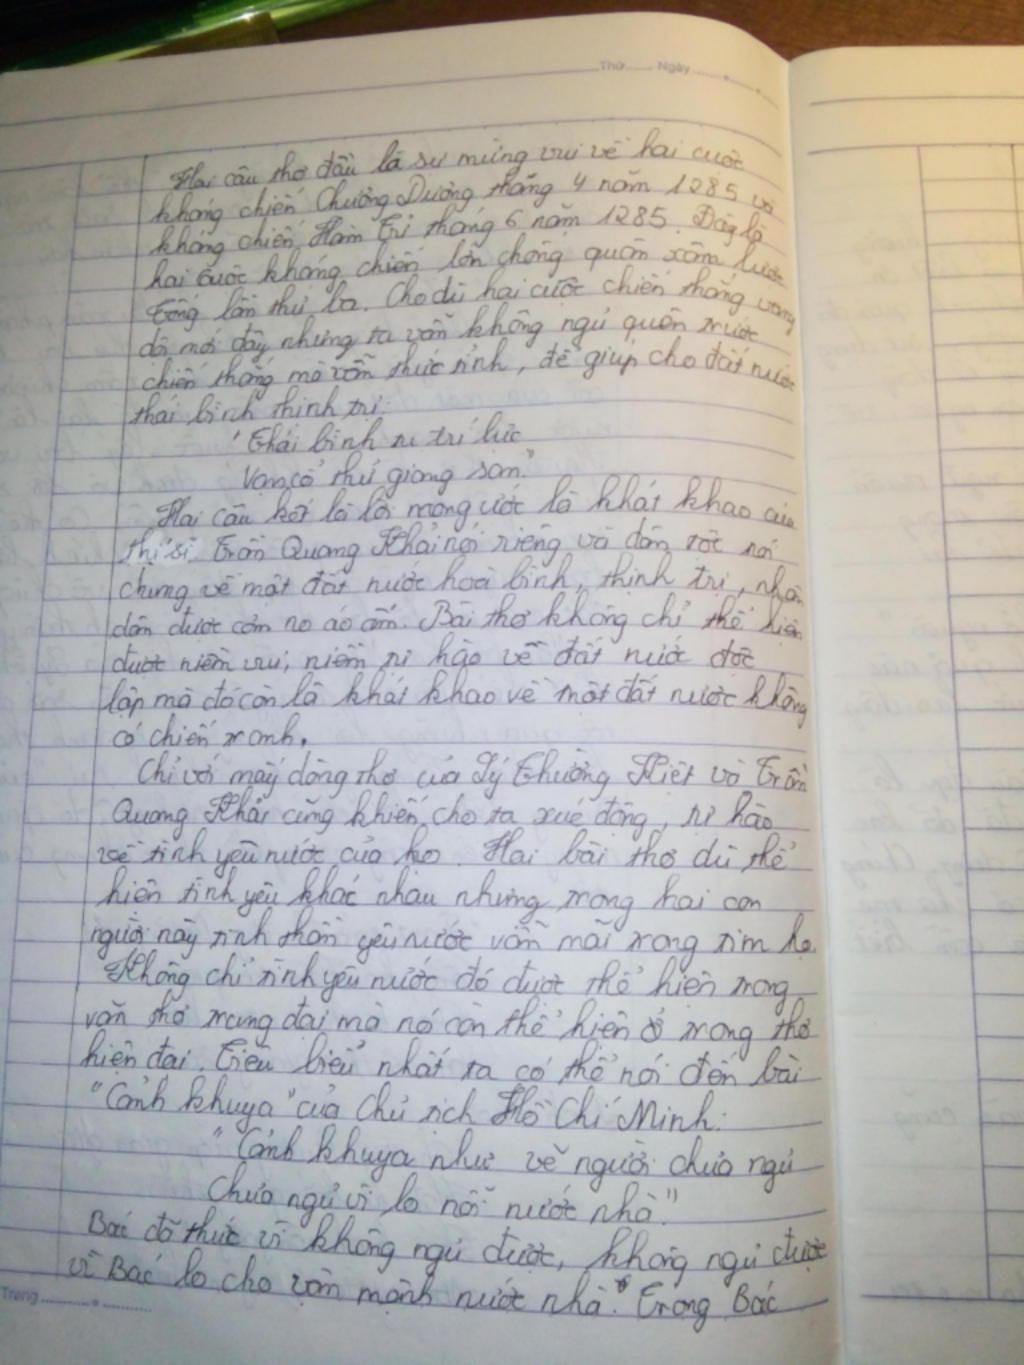 Thứ Ngày
Hai câu thơ đầu là sự mừng vui về hai cuộc
kháng chiến Chương Dương tháng 4 năm 1285 và
kháng chiến Hàm Tử tháng 6 năm 1285. Đây là
hai cuộc kháng chiến lớn chống quân xâm lược
Tống lần thứ ba. Cho dù hai cuộc chiến thắng vang
dội mới đây nhưng ta vẫn không ngủ quên trước
chiến thắng mà vẫn thức tỉnh, để giúp cho đất nước
thái bình thịnh trị:
"Thái bình tu trí lực
Vạn cổ thử giang san."
Hai câu kết là lời mong ước là khát khao của
thi sĩ Trần Quang Khải nói riêng và dân tộc nói
chung về một đất nước hoà bình, thịnh trị, nhân
dân được cơm no áo ấm. Bài thơ không chỉ thể hiện
được niềm vui, niềm tự hào về đất nước độc
lập mà đó còn là khát khao về một đất nước không
có chiến tranh.
Chỉ với mấy dòng thơ của Lý Thường Kiệt và Trần
Quang Khải cũng khiến cho ta xúc động, tự hào
về tình yêu nước của họ. Hai bài thơ dù thể
hiện tình yêu khác nhau nhưng trong hai con
người này tinh thần yêu nước vẫn mãi trong tim họ.
Không chỉ tình yêu nước đó được thể hiện trong
văn thơ trung đại mà nó còn thể hiện ở trong thơ
hiện đại. Tiêu biểu nhất ta có thể nói đến bài
"Cảnh khuya" của Chủ tịch Hồ Chí Minh:
"Cảnh khuya như vẽ người chưa ngủ
Chưa ngủ vì lo nỗi nước nhà."
Bác đã thức vì không ngủ được, không ngủ được
vì Bác lo cho vận mệnh nước nhà. Trong Bác
Trang